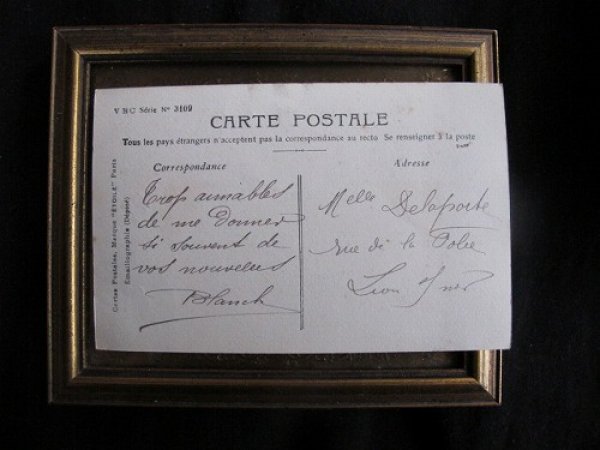 VBC Série Nº 3109
CARTE POSTALE
Tous les pays étrangers n'acceptent pas la correspondance au recto Se renseigner à la poste
Correspondance
Trop aimables
de me donner
si souvent de
vos nouvelles
Blanch
Adresse
Melle Delaporte
rue de la
Cartes Postales, Marque "ÉTOILE" Paris
Émaillographie (Déposé)